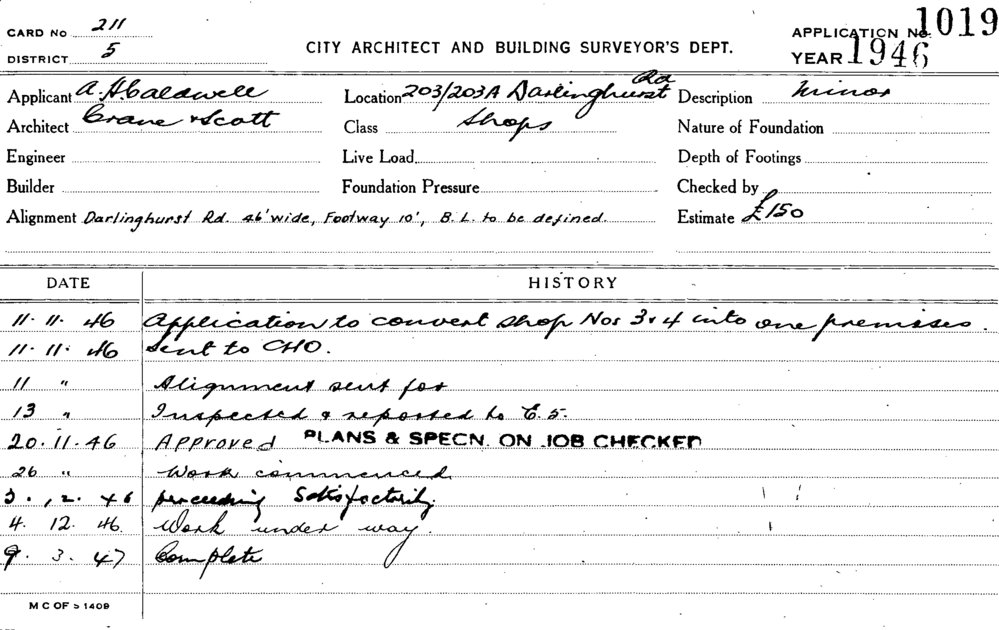 CARD No 211
APPLICATION No. 1019
DISTRICT 5
CITY ARCHITECT AND BUILDING SURVEYOR'S DEPT.
YEAR 1946
Applicant A. H Caldwell
Location 203/203A Darlinghurst Rd
Description Minor
Architect Crane & Scott
Class Shops
Nature of Foundation
Engineer
Live Load
Depth of Footings
Builder
Foundation Pressure
Checked by
Alignment Darlinghurst Rd. 46' wide, Footway 10', B.L. to be defined.
Estimate £150
DATE HISTORY
11. 11. 46 Application to convert shop Nos 3 & 4 into one premises.
11. 11. 46 Sent to CHO.
11 " Alignment sent for
13 " Inspected & reported to E.S.
20. 11. 46 Approved PLANS & SPECN. ON JOB CHECKED
26 " Work commenced
3. 12. 46 proceeding Satisfactorily.
4. 12. 46. Work under way.
9. 3. 47 Complete
M C OF S 1409